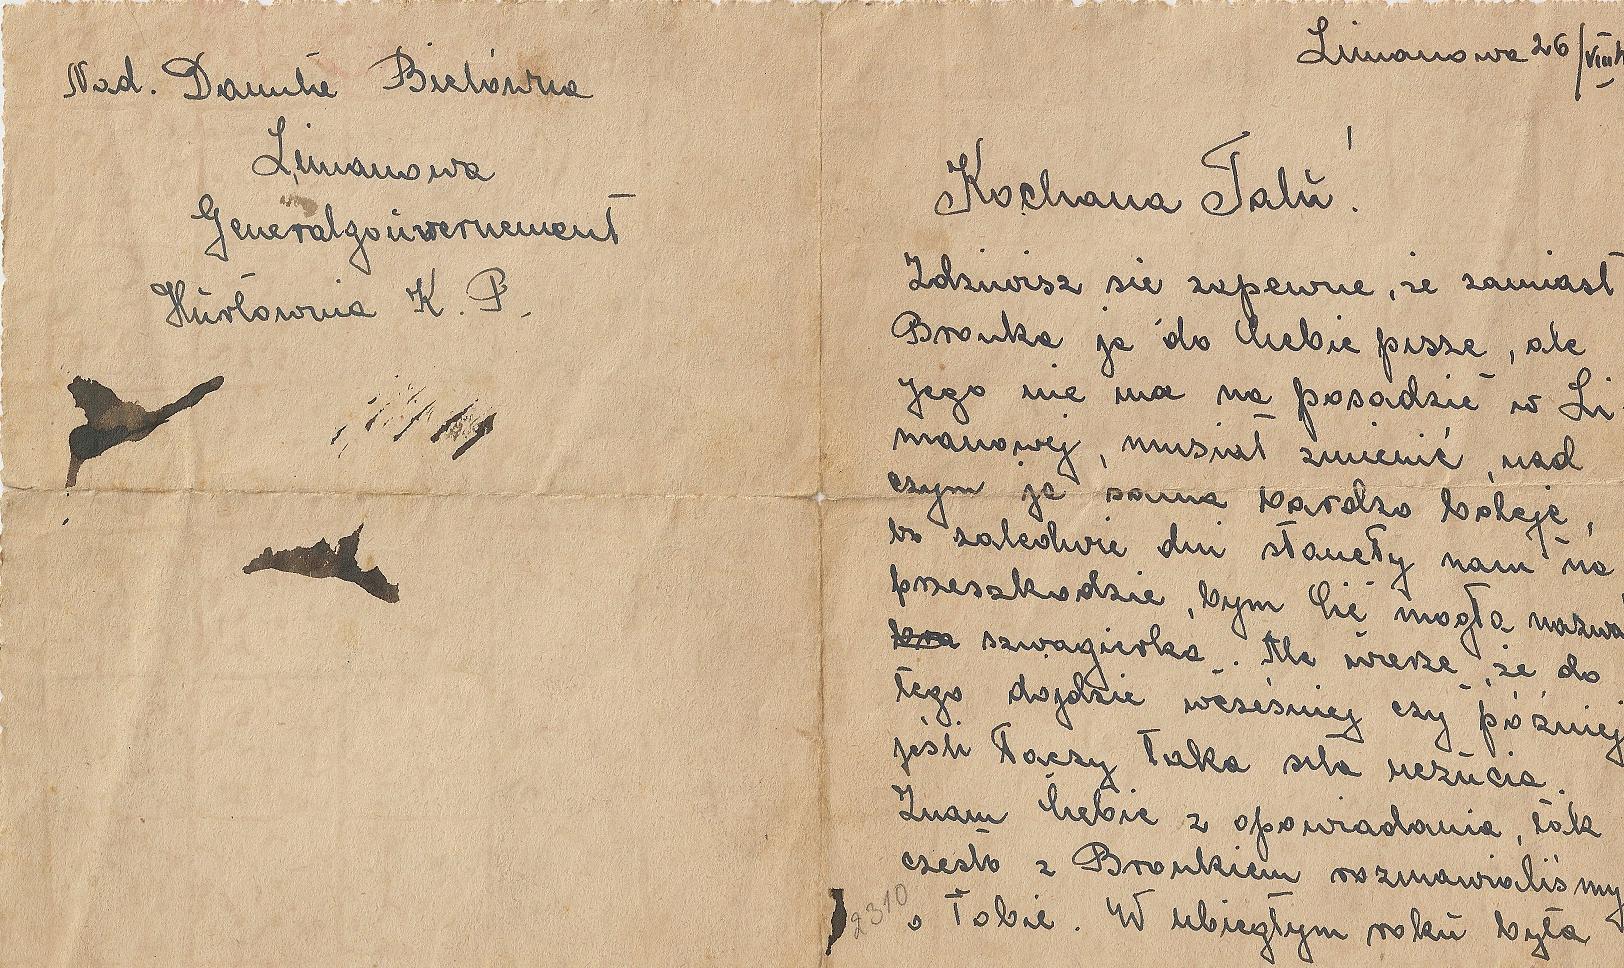 Nad. Danuta Bielówna
Limanowa
Generalgouvernement
Hurtownia K. P.
Limanowa 26/VIII
Kochana Talu!
Zdziwisz sie zapewne, że zamiast
Bronka ja do Ciebie pisze, ale
jego nie ma na posadzie w Li
manowej, musiał zmienić, nad
czym ja sama bardzo boleje,
bo zaledwie dni staneły nam na
przeszkodzie, bym Cie mogła nazwa
szwagierka. Ale wierze, że do
tego dojdzie wcześniej czy później
jeśli łaczy taka siła uczucia.
Znam Ciebie z opowiadania, tak
czesto z Bronkiem rozmawialiśmy
o Tobie. W ubiegłym roku była
2310